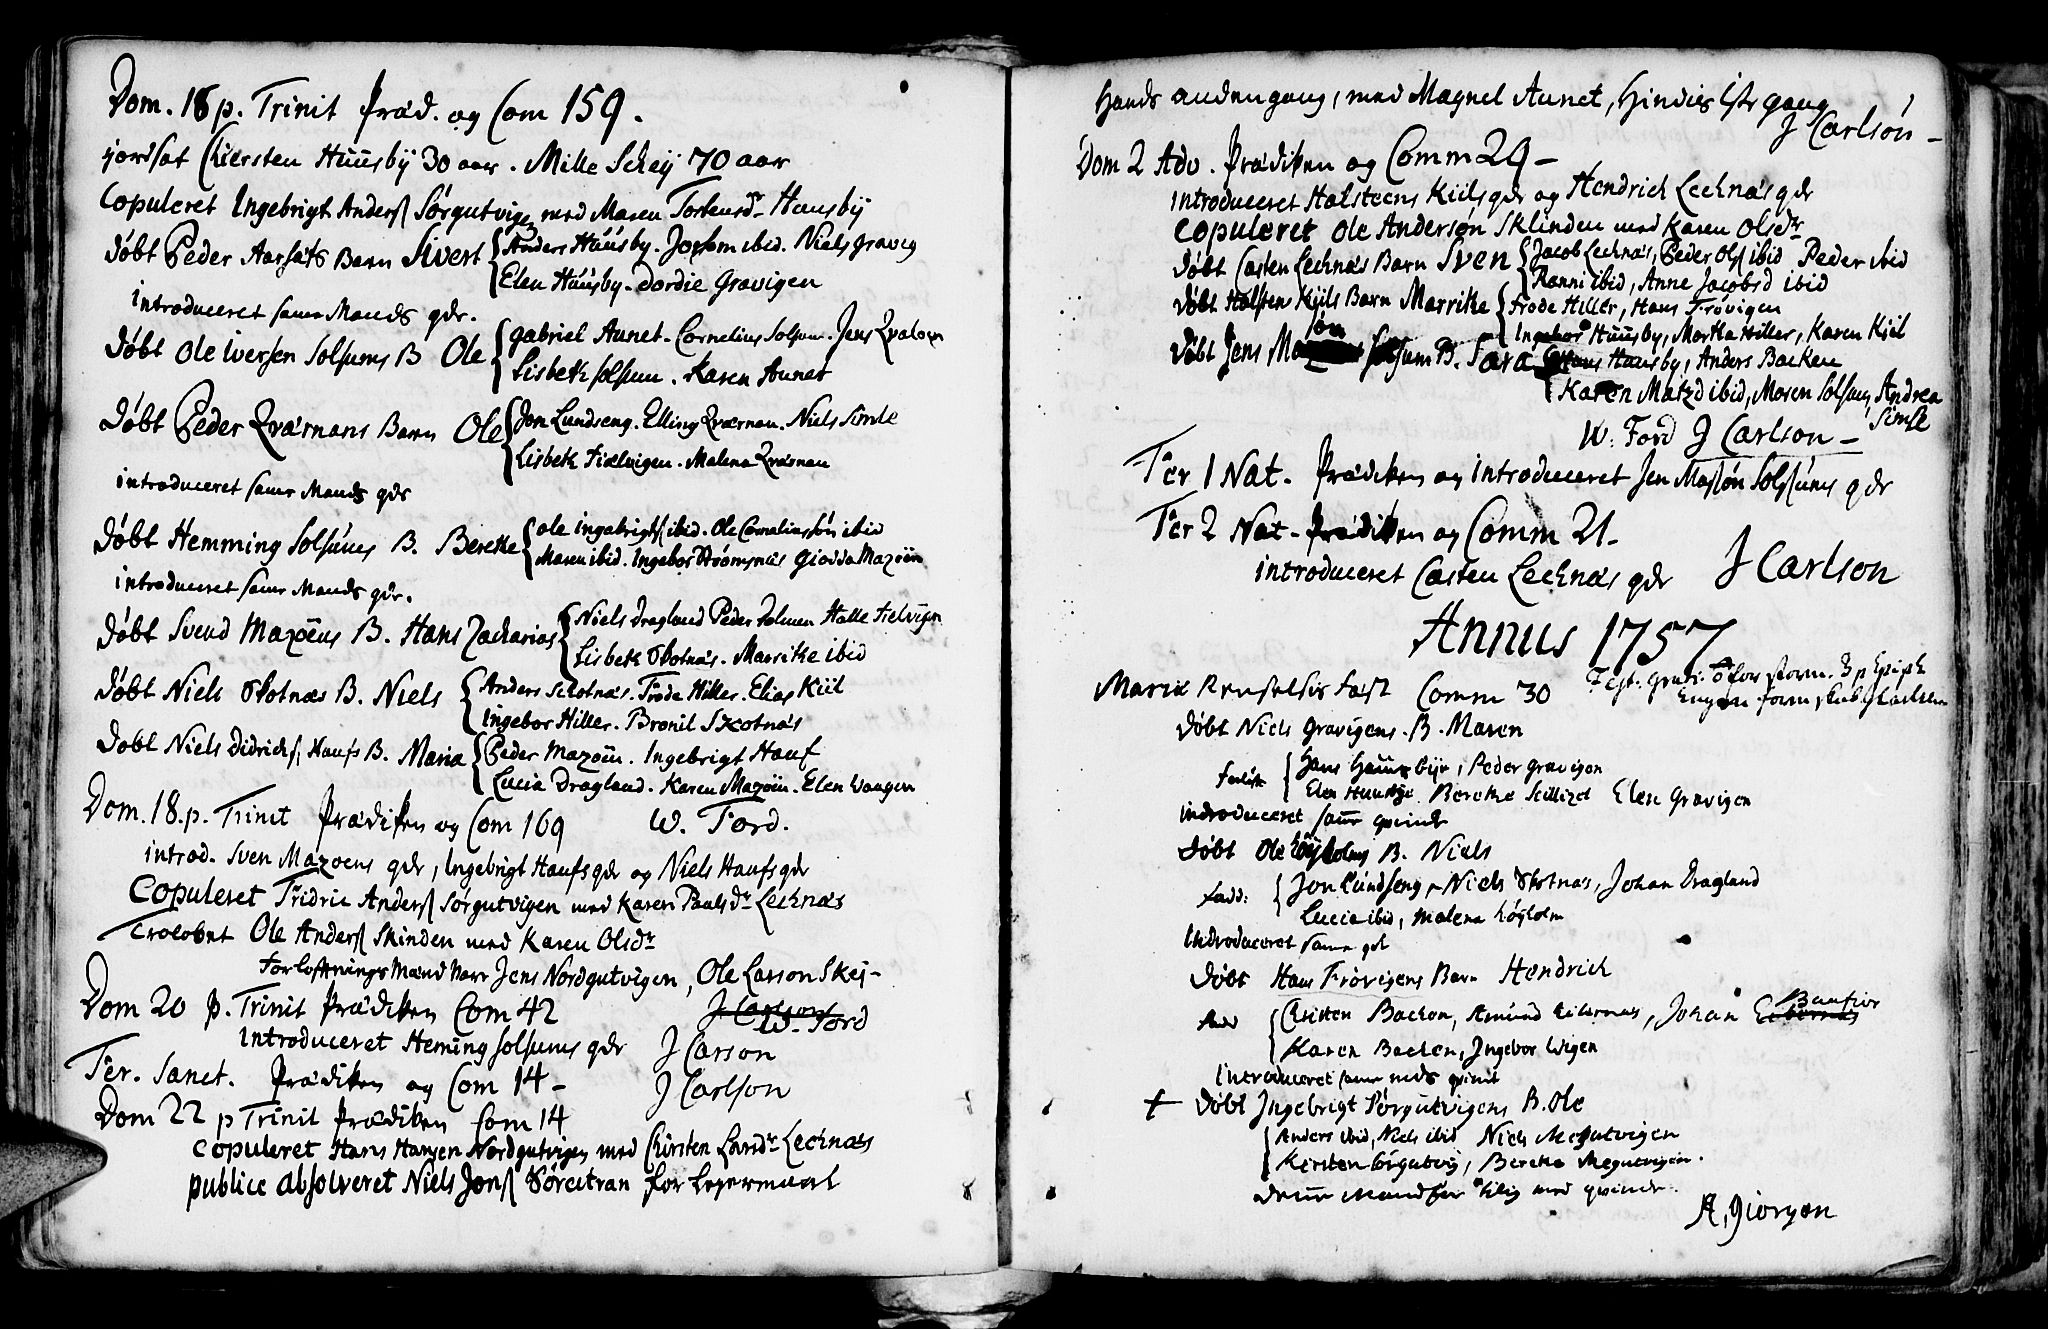 Dom. 18 p. Trinit Præd. og Com 159.
jordsat Chiersten Huusby 30 aar. Mille Schey 70 aar
Copuleret Ingebrigt Anders Sørgutvigen med Maren Torbensdr Hansby
døbt Peder Aarsats Barn Sivert
Anders Huusby. ibid. Niels Gravig
Elen Huusby. Dordie Gravigen
introduceret samme Mands qdr.
døbt Ole Iversen Solsums B Ole
Gabriel Aunet. Cornelius Solsum. Jens
Lisbeth Solsum. Karen Aunet
døbt Peder Qværnans Barn Ole
Jon Lundseng. Elling Qværnan. Niels Simle
Lisbeth Fielvigen. Malena Qværnan
introduceret samme Mands qdr
døbt Hemming Solsums B. Berethe
Ole Ingebrigts ibid. Ole Corneliussøn ibid
Maren ibid. Ingebor Strømsnæs Giødda Mazøin
introduceret samme Mands qdr.
døbt Svend Mazøens B. Hans Zacharias
Niels Dragland Peder Holmen Halle Fielvign
Lisbeth Skotnæs. Marrike ibid
døbt Niels Skotnæs B. Niels
Anders Schotnæs. Frode Hiller. Elias Kiil
Ingebor Hiller. Bronil Skotnæs
døbt Niels Didrichs Haufs B. Maria
Peder Mazøin. Ingebrigt Hauf
Lucia Dragland. Karen Mazøin. Elen Wongen
Dom. 18. p. Trinit Prædiken og Com 169 W. Ford.
introd. Sven Mazoens qdr, Ingebrigt Haufs qdr og Niels Haufs qdr
Copuleret Fridric Anders Sørgutvigen med Karen Paulsdr Lechnæs
Trolovet Ole Anders Skinden med Karen Olsdr
Forlofningsmænd Jens Nordgutvigen, Ole Larson Skej
Dom 20 p. Trinit Prædiken Com 42 J Carlson W. Ford
introduceret Heming Solsums qdr J Carson
Fer. Sanct. Prædiken og Com 14 - J Carlson
Dom 22 p Trinit Prædiken Com 14
Copuleret Hans Hansen Nordgutvigen med Chirsten Larsdr Lechnæs
publice absolveret Niels Jons for Legermaal
Hands anden gang, med Magnel Aunet, Hindis 1ste gang
J Carlson -
Dom 2 Adv. Prædiken og Comm 29 -
introduceret Halsteens Kiils qdr og Hendrich Lechnæs qdr
Copuleret Ole Andersøn Sklinden med Karen Olsdr
døbt Casten Lechnæs Barn Sven
Jacob Lechnæs, Peder Ols ibid Peder ibid
Ranni ibid, Anne Jacobsd ibid
døbt Halsten Kiils Barn Marrike
Frode Hiller, Hans Frøvigen
Ingebor Huusby, Martha Hiller, Karen Kiil
døbt Jens Solsum B. Sara
Hans Huusby, Anders Backen
Karen Matzd ibid, Maren Solsum, Andrea Simle
W. Ford J Carlson -
Fer 1 Nat. Prædiken og introduceret Jen Massøn Solsums qdr
Fer 2 Nat - Prædiken og Comm 21 -
introduceret Casten Lechnæs qdr J Carlson
Annus 1757
Mariæ Renselsis fæst Comm 30
for storm. 3 p Epiph
døbt Niels Gravigens. B. Maren
Hans Huusbye, Peder Gravigen
Elen Huusbye Berethe Elen Gravigen
introduceret samme qvinde
døbt Ole Høyholms B. Niels
Fadd:
Jon Lundseng, Niels Skotnæs, Johan Dragland
Lucia ibid, Malena Høyholm
introduceret samme
døbt Hans Frøvigens Barn Hendrich
Fadd
Christen Backen, Amund, Johan
Karen Backen, Ingebor Wigen
introduceret samme
+ døbt Ingebrigt Sørgutvigens B. Ole
Anders ibid, Niels ibid Niels
Kirsten Sørgutvig, Berethe
A, Giørgen